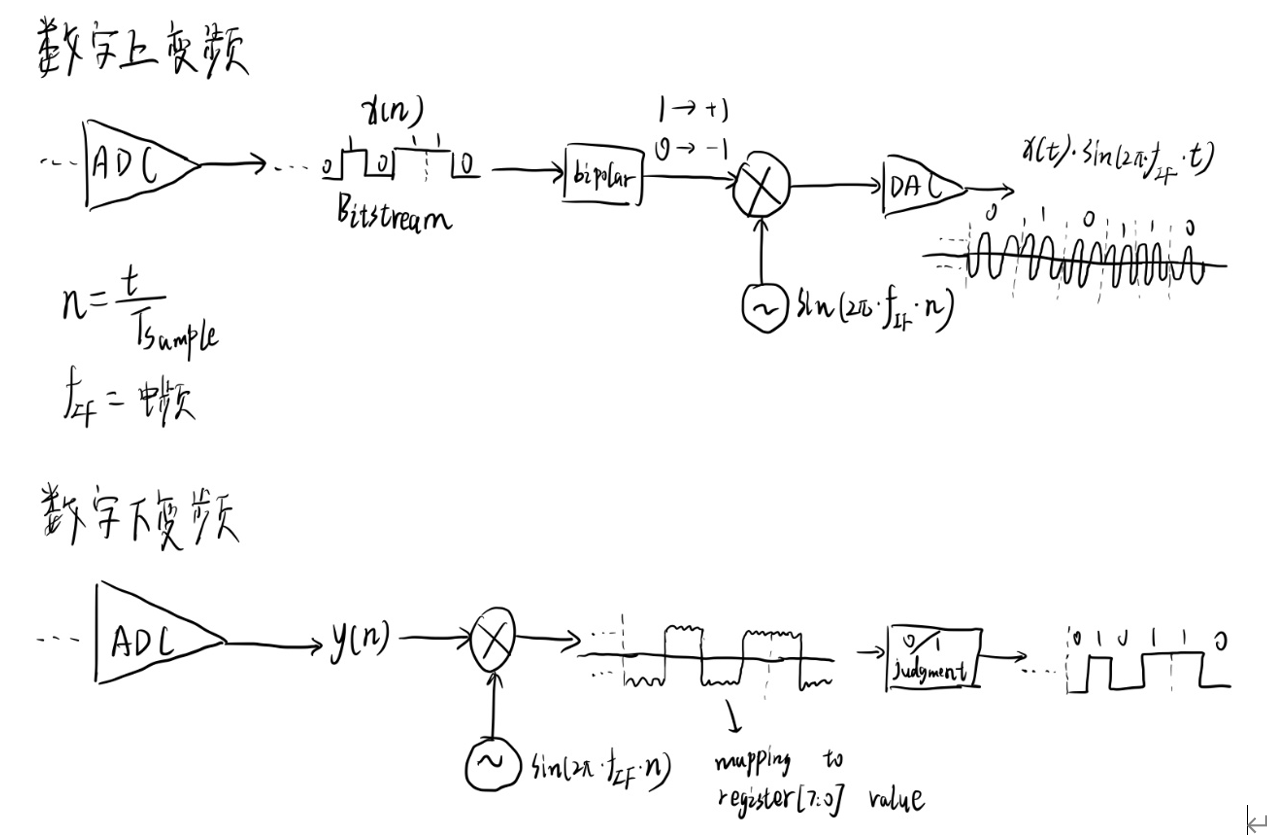 数字上变频
ADC
x(n)
0 1 0 1 1 0
Bitstream
bipolar
1 → +1
0 → -1
sin(2π·f_IF·n)
DAC
x(t)·sin(2π·f_IF·t)
0 1 0 1 1 0
n = t / Tsample
f_IF = 中频
数字下变频
ADC
y(n)
sin(2π·f_IF·n)
mapping to
register[7:0] value
0/1
judgment
0 1 0 1 1 0